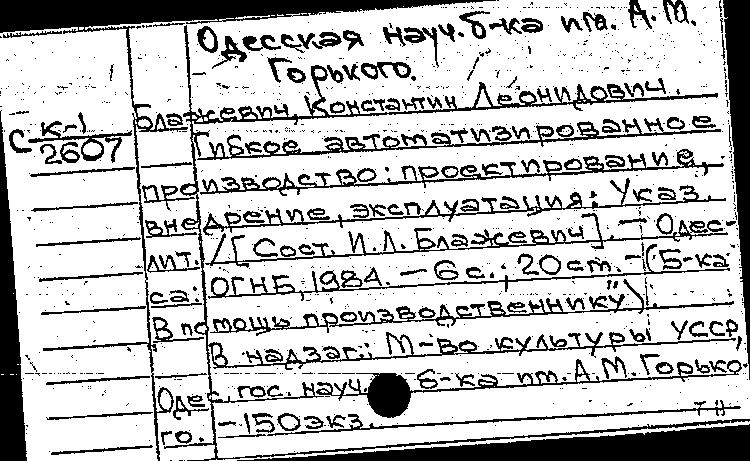 Одесская науч. б-ка им. А.М.
Горького.
Блажевич, Константин Леонидович.
С К-1
2607
Гибкое автоматизированное
производство: проектирование,
внедрение, эксплуатация: Указ.
лит. /[Сост. И.Л. Блажевич]. — Одес-
са: ОГНБ, 1984. — 6 с.; 20 cm. — (Б-ка
"В помощь производственнику").
В надзаг.: М-во культуры УССР,
Одес. гос. науч. б-ка им. А.М. Горько-
го. — 150 экз.